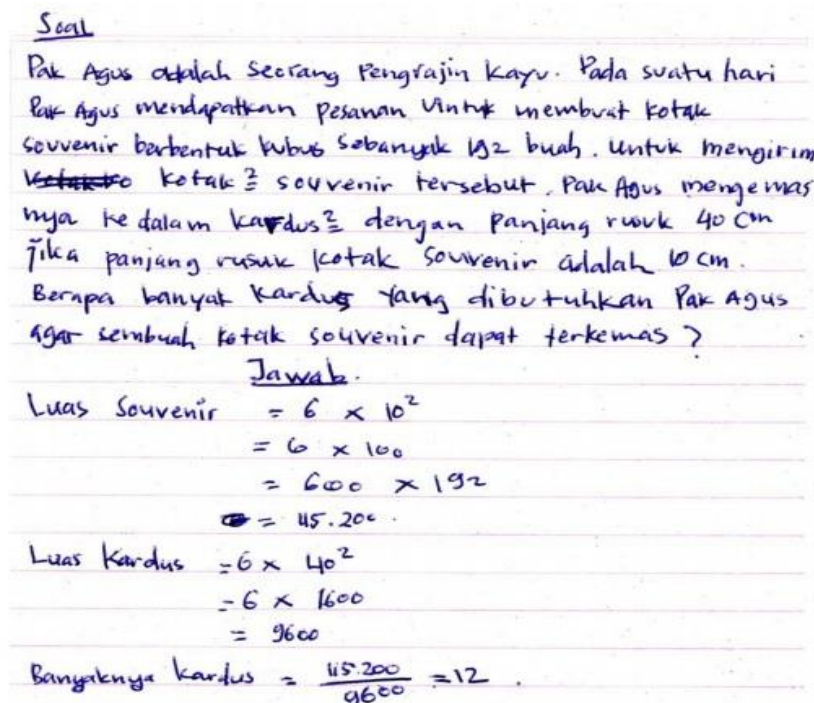 Soal
Pak Agus adalah Seorang Pengrajin Kayu. Pada suatu hari
Pak Agus mendapatkan pesanan Untuk membuat kotak
souvenir berbentuk kubus sebanyak 192 buah. Untuk mengirim
kotak² souvenir tersebut. Pak Agus mengemas
nya ke dalam kardus² dengan panjang rusuk 40 cm
jika panjang rusuk kotak souvenir adalah 10 cm.
Berapa banyak kardus yang dibutuhkan Pak Agus
agar sembuah kotak souvenir dapat terkemas ?
Jawab.
Luas Souvenir = 6 × 10²
= 6 × 100
= 600 × 192
= 115.200.
Luas Kardus = 6 × 40²
= 6 × 1600
= 9600
Banyaknya kardus = 115.200 / 9600 = 12.